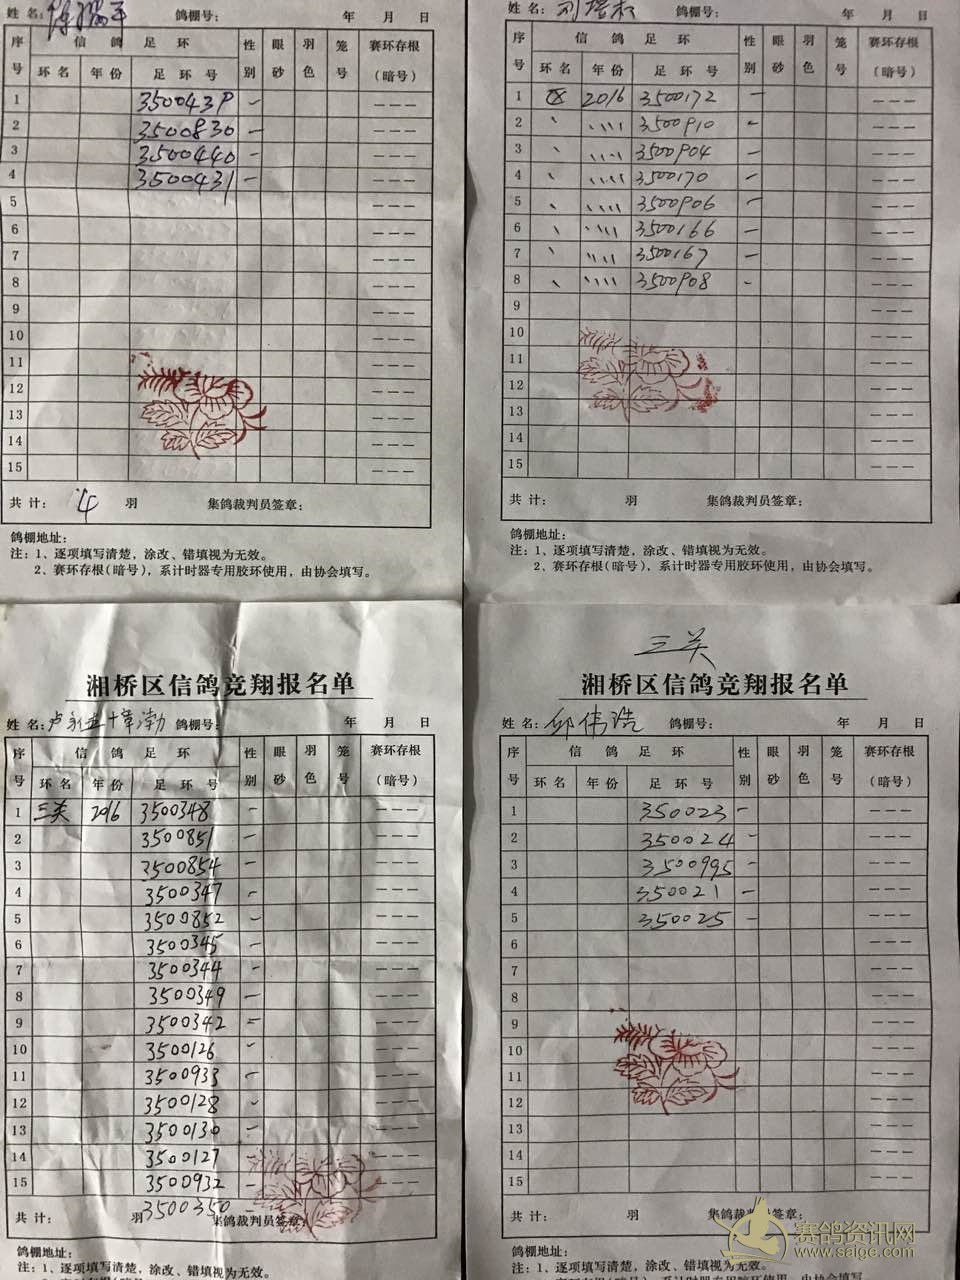 姓 名: 鸽棚号: 年 月 日
序号 信 鸽 足 环 性别 眼砂 羽色 笼号 赛环存根(暗号)
环 名 年 份 足 环 号
1 350043P — — — —
2 3500830 —
3 3500440 — — — —
4 3500431 — — — —
5 — — —
6 — — —
7 — — —
8 — — —
9 — — —
10 — — —
11 — — —
12 — — —
13 — — —
14 — — —
15 — — —
共 计: 4 羽 集鸽裁判员签章:
鸽棚地址:
注: 1、逐项填写清楚，涂改、错填视为无效。
2、赛环存根(暗号)，系计时器专用胶环使用，由协会填写。
姓 名: 刘 鸽棚号: 年 月 日
序号 信 鸽 足 环 性别 眼砂 羽色 笼号 赛环存根(暗号)
环 名 年 份 足 环 号
1 2016 3500172 — — — —
2 3500910 — — — —
3 3500904 — — — —
4 3500170 — — — —
5 3500906 — — — —
6 3500166 — — — —
7 3500167 — — — —
8 3500908 - — — —
9 — — —
10 — — —
11 — — —
12 — — —
13 — — —
14 — — —
15 — — —
共 计: 羽 集鸽裁判员签章:
鸽棚地址:
注: 1、逐项填写清楚，涂改、错填视为无效。
2、赛环存根(暗号)，系计时器专用胶环使用，由协会填写。
湘桥区信鸽竞翔报名单
姓 名: 鸽棚号: 年 月 日
序号 信 鸽 足 环 性别 眼砂 羽色 笼号 赛环存根(暗号)
环 名 年 份 足 环 号
1 三关 2016 3500348 — — — —
2 3500851 — — — —
3 3500854 — — — —
4 3500347 — — — —
5 3500852 — — — —
6 3500345 — — — —
7 3500344 — — — —
8 3500349 — — — —
9 3500342 — — — —
10 3500126 — — — —
11 3500933 — — — —
12 3500128 — — — —
13 3500130 — — — —
14 3500127 — — — —
15 3500932 — — — —
3500350 —
共 计: 羽 集鸽裁判员签章:
鸽棚地址:
注: 1、逐项填写清楚，涂改、错填视为无效。
三关
湘桥区信鸽竞翔报名单
姓 名: 邱伟浩 鸽棚号: 年 月 日
序号 信 鸽 足 环 性别 眼砂 羽色 笼号 赛环存根(暗号)
环 名 年 份 足 环 号
1 350023 — — — —
2 350024 — — — —
3 3500995 — — — —
4 350021 — — — —
5 350025 — — — —
6 — — —
7 — — —
8 — — —
9 — — —
10 — — —
11 — — —
12 — — —
13 — — —
14 — — —
15 — — —
共 计: 羽 集鸽裁判员签章:
鸽棚地址:
注: 1、逐项填写清楚，涂改、错填视为无效。
赛鸽资讯网
www.saigc.com